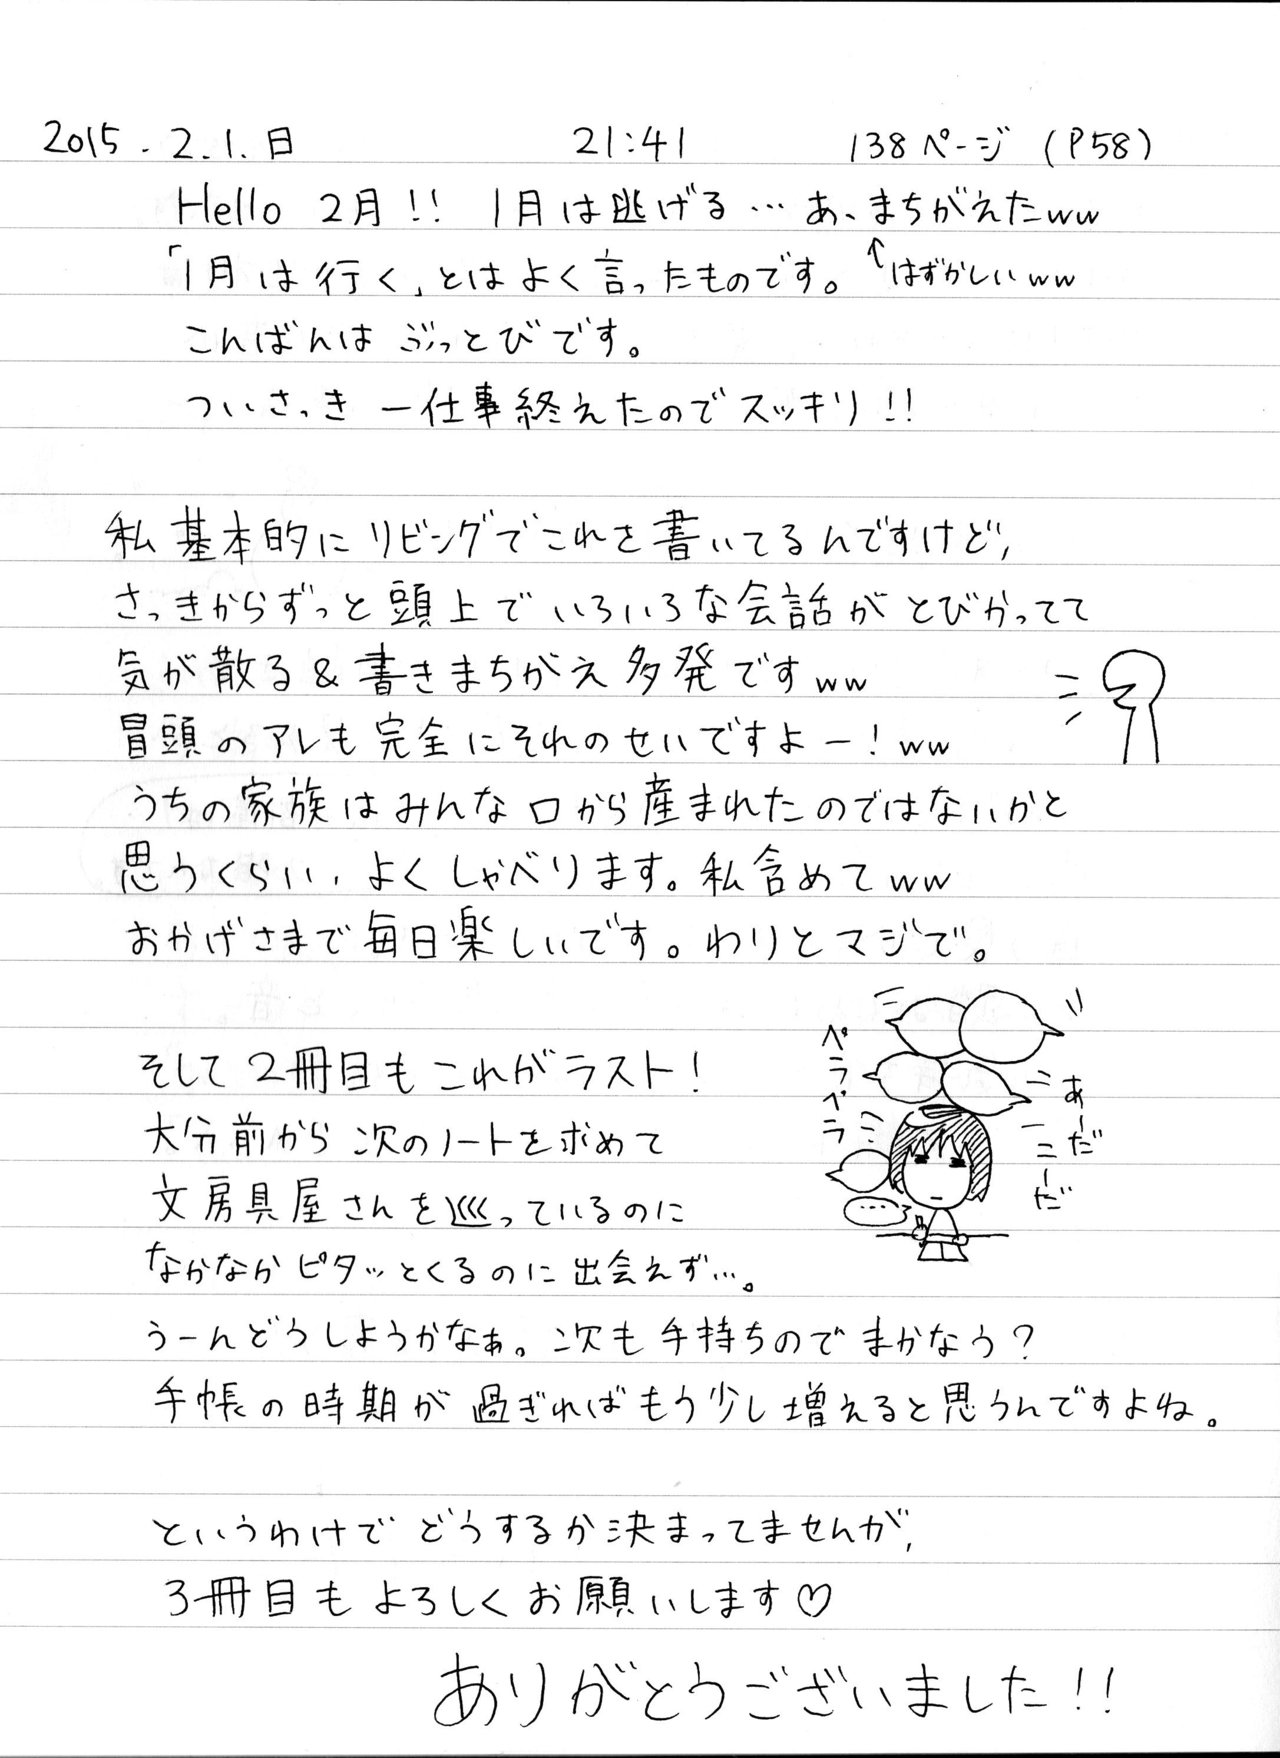 2015.2.1.日 21:41 138ページ (P58)
Hello 2月!! 1月は逃げる…あ、まちがえたww
「1月は行く」とはよく言ったものです。 ↑はずかしいww
こんばんは ぶっとびです。
ついさっき 一仕事終えたのでスッキリ!!
私基本的にリビングでこれを書いてるんですけど、
さっきからずっと頭上でいろいろな会話がとびかってて
気が散る&書きまちがえ多発ですww
冒頭のアレも完全にそれのせいですよー!ww
うちの家族はみんな口から産まれたのではないかと
思うくらい、よくしゃべります。私含めてww
おかげさまで毎日楽しいです。わりとマジで。
そして2冊目もこれがラスト!
大分前から次のノートを求めて
文房具屋さんを巡っているのに
なかなかピタッとくるのに出会えず…。
うーんどうしようかなぁ。次も手持ちのでまかなう?
手帳の時期が過ぎればもう少し増えると思うんですよね。
ペラペラ
あーだ
こーだ
……
というわけでどうするか決まってませんが、
3冊目もよろしくお願いします♡
ありがとうございました!!